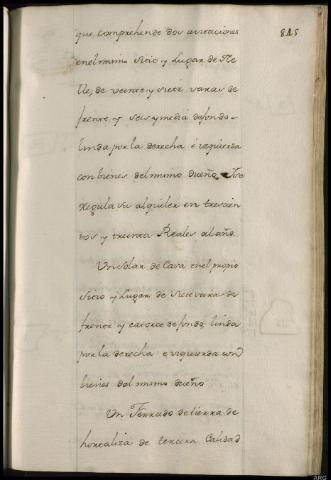 815
que comprehende dos
en el mismo Sitio y Lugar de Ne
lle, de veinte y siete varas de
frente y seis y media de fondo
linda por la derecha e izquierda
con bienes del mismo dueño. Se
regula su alquiler en trescien
tos y treinta Reales al año
Un solar de Casa en el propio
Sitio y Lugar de siete varas de
frente y catorce de fondo linda
por la derecha e izquierda con
bienes del mismo dueño
Un Ferrado de tierra de
hortaliza de tercera Calidad
ARG